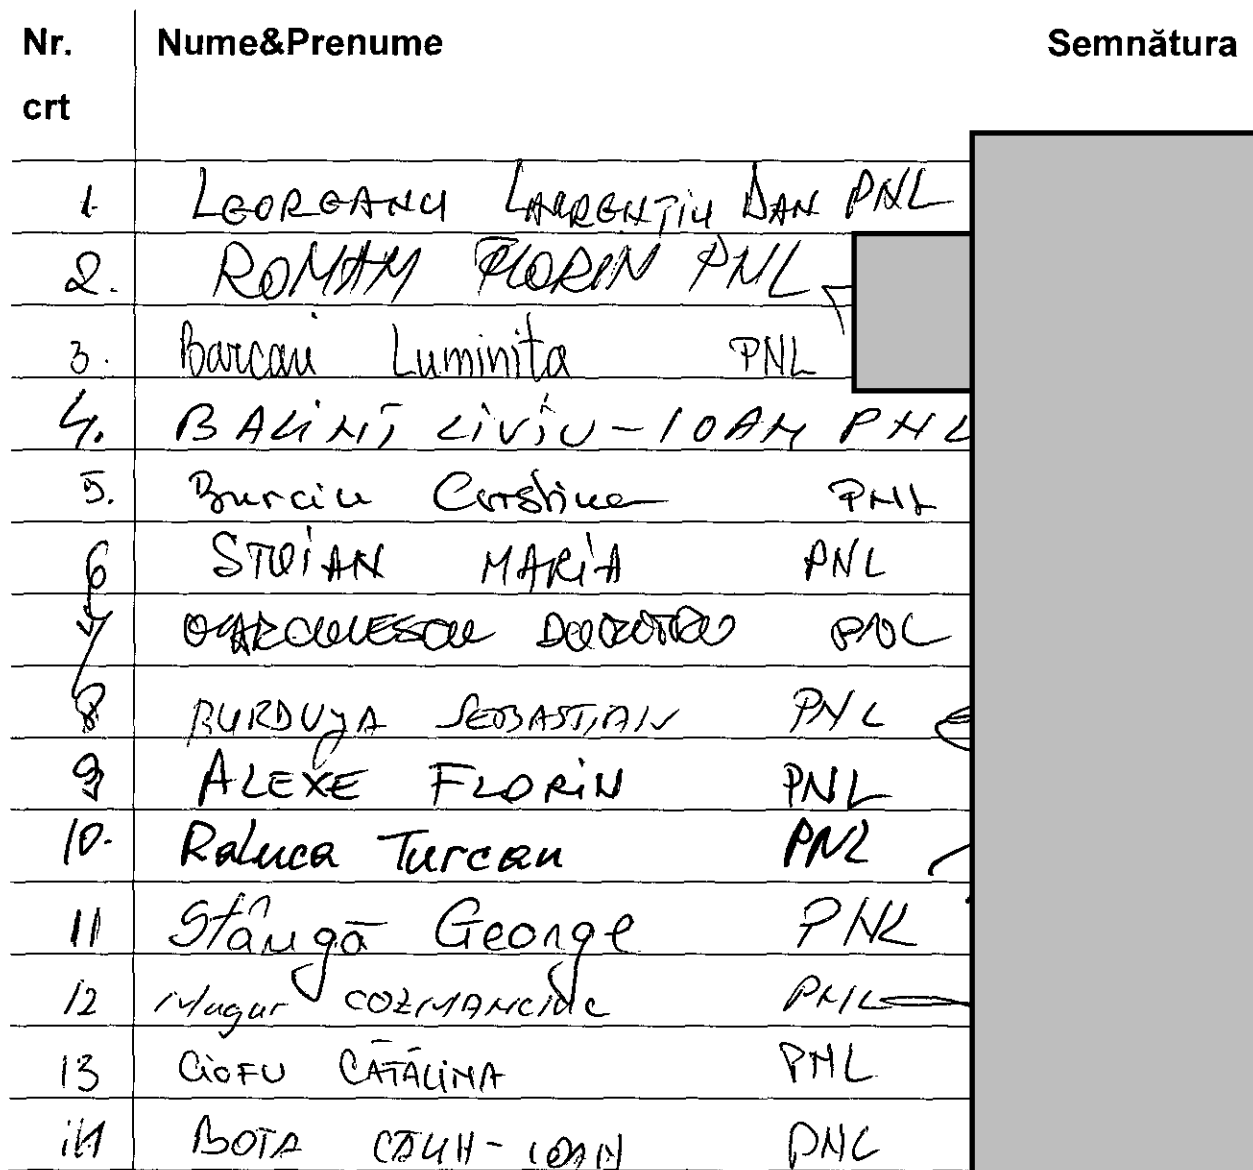 Nr. Nume&Prenume Semnătura
crt
1. LEOREANU LAURENȚIU DAN PNL
2. ROMAN FLORIN PNL
3. Barcari Luminița PNL
4. BALINT LIVIU-IOAN PNL
5. Burciu Cristina PNL
6 STOIAN MARIA PNL
7 PNL
8 BURDUJA SEBASTIAN PNL
9 ALEXE FLORIN PNL
10. Raluca Turcan PNL
11 Stângă George PNL
12 Mugur COZMANCIUC PNL
13 CIOFU CĂTĂLINA PNL
14 BOTA CĂLIN-IOAN PNL